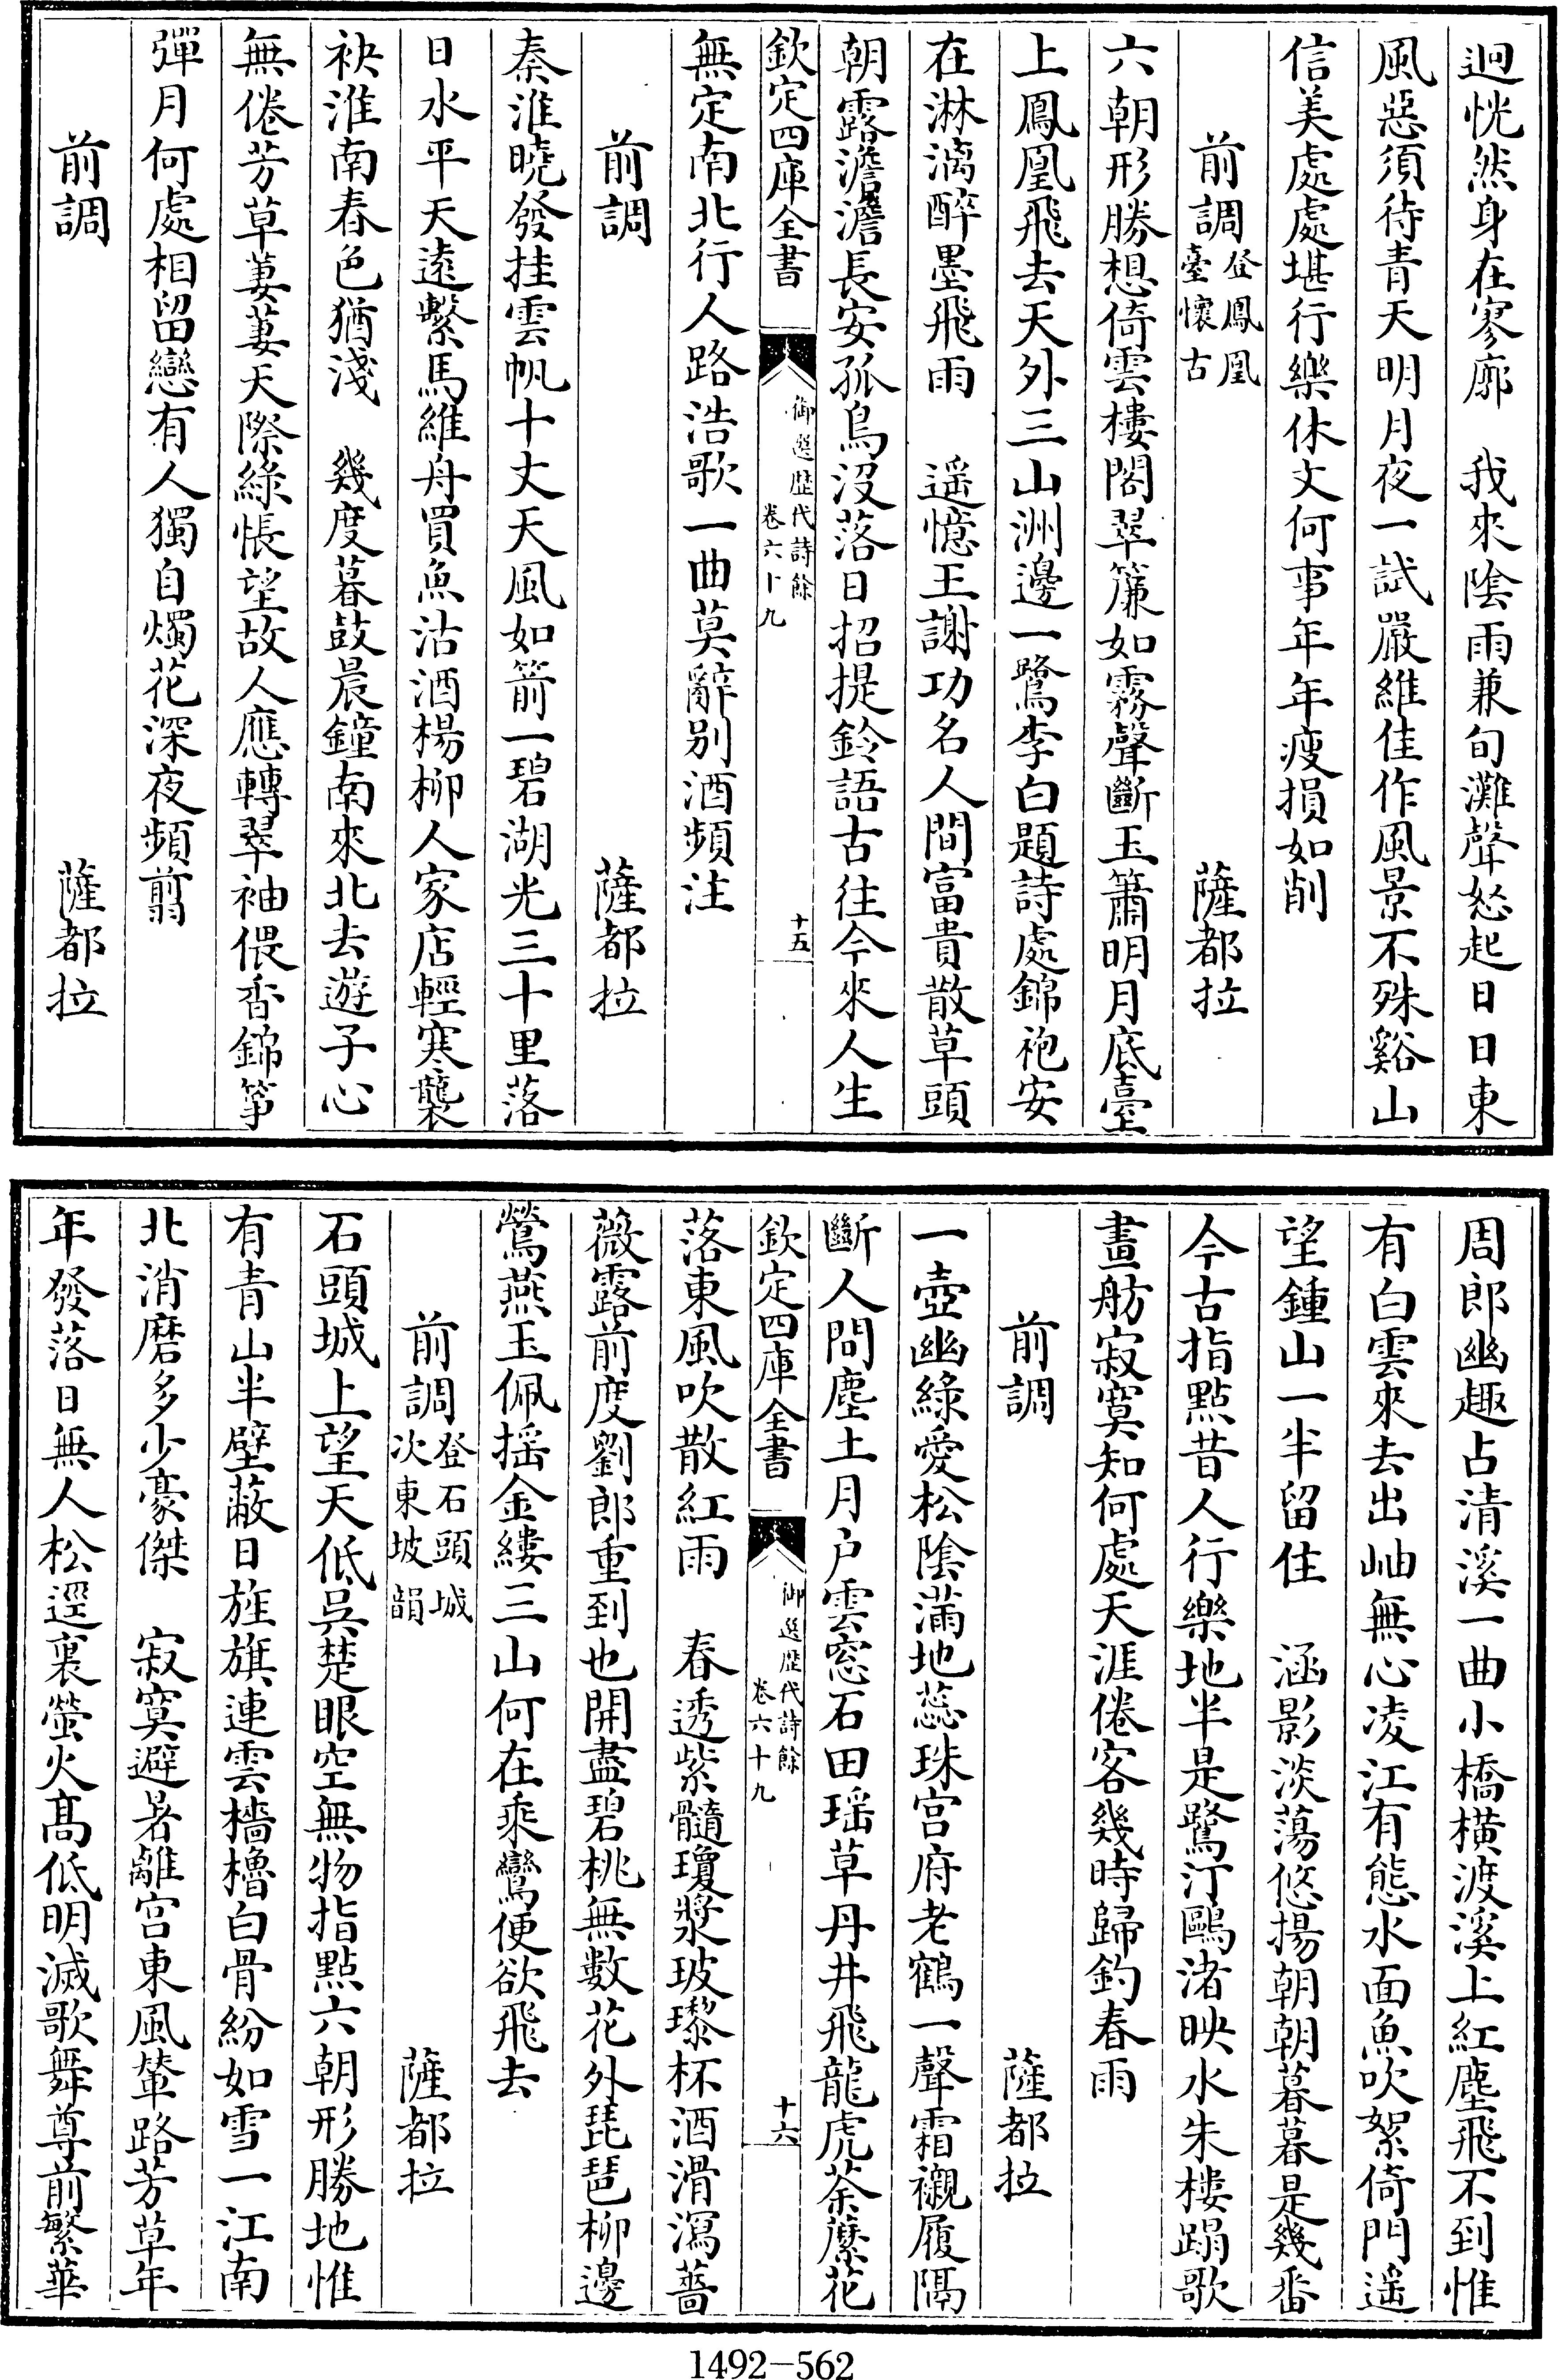 迥恍然身在寥廓　我來陰雨兼旬灘聲怒起日日東
風惡須待青天明月夜一試嚴維佳作風景不殊谿山
信美處處堪行樂休文何事年年瘦損如削
前調登鳳凰臺懷古　薩都拉
六朝形勝想倚雲樓閣翠簾如霧聲斷玉簫明月底臺
上鳳凰飛去天外三山洲邊一鷺李白題詩處錦袍安
在淋漓醉墨飛雨　遥憶王謝功名人間富貴散草頭
朝露澹澹長安孤鳥没落日招提鈴語古往今來人生
欽定四庫全書　御選歴代詩餘卷六十九　十五
無定南北行人路浩歌一曲莫辭别酒頻注
前調　薩都拉
秦淮曉發挂雲帆十丈天風如箭一碧湖光三十里落
日水平天遠繫馬維舟買魚沽酒楊柳人家店輕寒襲
袂淮南春色猶淺　幾度暮鼓晨鐘南來北去遊子心
無倦芳草萋萋天際緑悵望故人應轉翠袖偎香錦箏
彈月何處相留戀有人獨自燭花深夜頻翦
前調　薩都拉
周郎幽趣占清溪一曲小橋横渡溪上紅塵飛不到惟
有白雲來去出岫無心凌江有態水面魚吹絮倚門遥
望鍾山一半留住　涵影淡蕩悠揚朝朝暮暮是幾番
今古指點昔人行樂地半是鷺汀鷗渚映水朱樓蹋歌
畫舫寂寞知何處天涯倦客幾時歸釣春雨
前調　薩都拉
一壺幽緑愛松陰滿地蕊珠宫府老鶴一聲霜襯履隔
斷人間塵土月户雲窓石田瑶草丹井飛龍虎荼蘼花
欽定四庫全書　御選歴代詩餘卷六十九　十六
落東風吹散紅雨　春透紫髓瓊漿玻瓈杯酒滑瀉薔
薇露前度劉郎重到也開盡碧桃無數花外琵琶柳邊
鶯燕玉佩摇金縷三山何在乘鸞便欲飛去
前調登石頭城次東坡韻　薩都拉
石頭城上望天低吳楚眼空無物指點六朝形勝地惟
有青山半壁蔽日旌旗連雲檣櫓白骨紛如雪一江南
北消磨多少豪傑　寂寞避暑離宫東風輦路芳草年
年發落日無人松逕裏螢火髙低明滅歌舞尊前繁華
1492—562